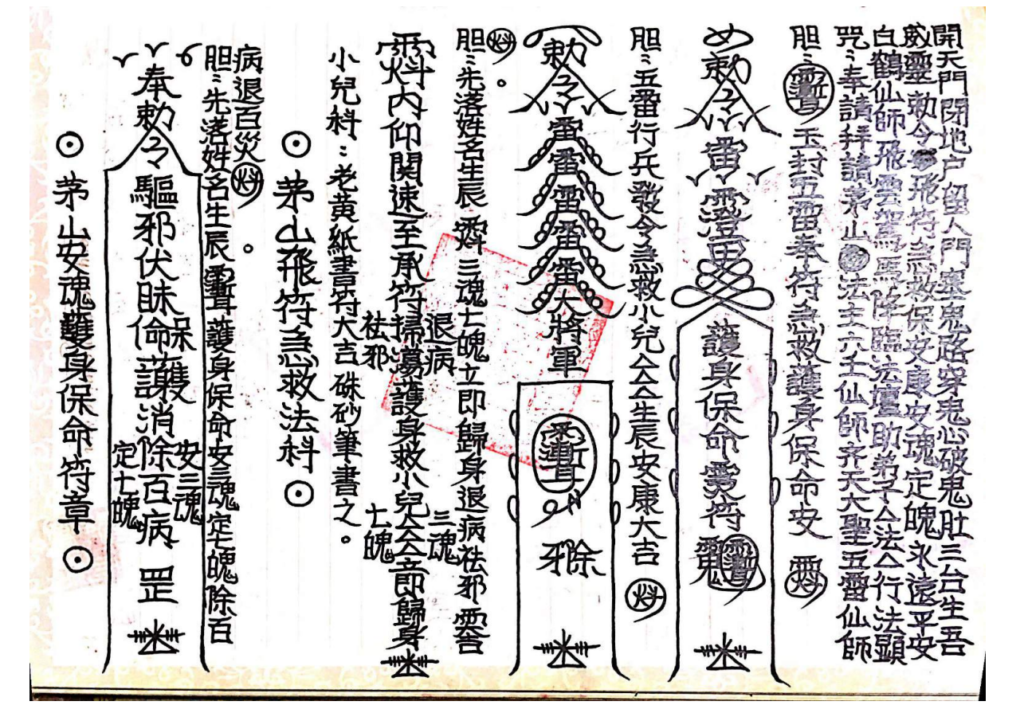 開天門閉地户留人門塞鬼路穿鬼心破鬼肚三台生吾
威靈勅令飛符急救保安康安魂定魄永遠平安
白鶴仙師飛雲駕馬降臨法壇助弟子仝法仝行法顯
咒:奉請拜請茅山法主六壬仙師齐天大聖五雷仙師
胆:玉封五雷奉符急救護身保命安
勅令雷護身保命靈符
胆:五雷行兵發令急救小兒仝仝生辰安康大吉
勅令雷雷雷雷雷大將軍
除邪
胆:先落姓名生辰三魂七魄立即歸身退病祛邪
內仰関速至承符退病祛邪掃蕩護身救小兒仝仝三魂七魄立即歸身
小兒科:老黃紙書符大吉硃砂筆書之。
⊙茅山飛符急救法科⊙
病退百災。
胆:先落姓名生辰護身保命安三魂定七魄除百
奉勅令驅邪伏昧保命護消除百病安三魂定七魄罡
⊙茅山安魂護身保命符章⊙